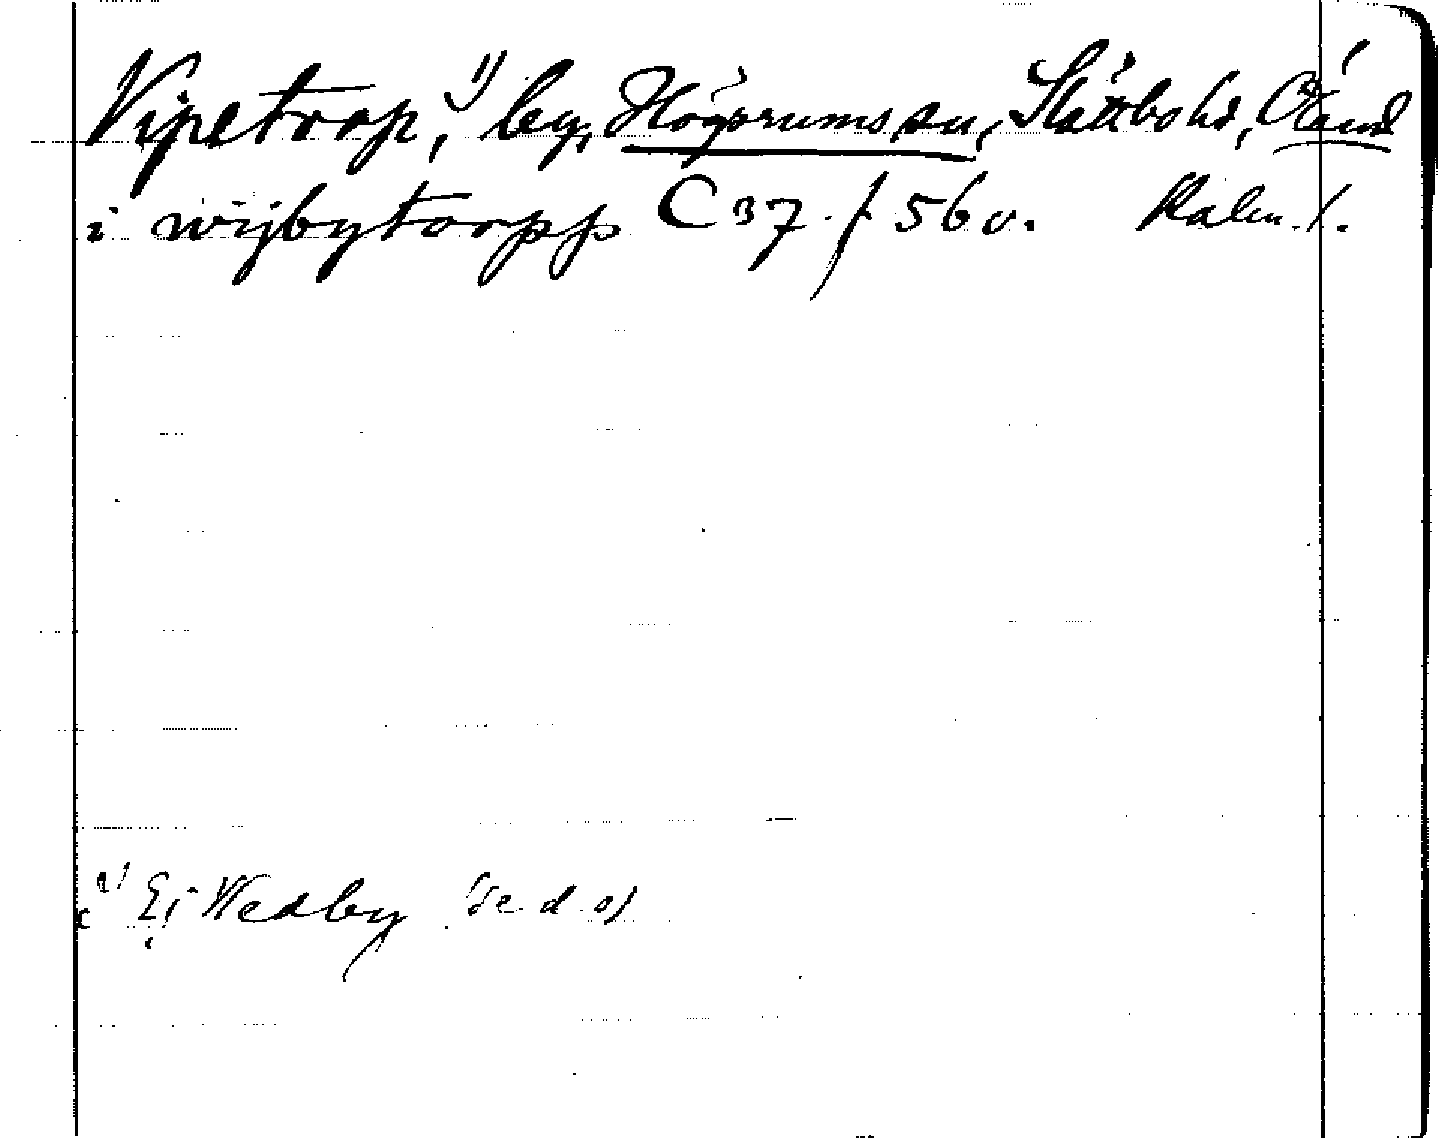 Vipetorp,¹⁾ by, Högsrums sn, Slättbo hd, Öland
i wijbytorpp C 37 f 56 v. Kalm. l.
¹⁾ Ej Wedby (se d o)